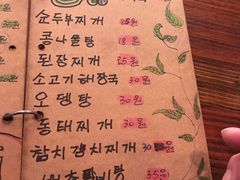 순두부찌개 25원
콩나물탕 18원
된장찌개 25원
소고기해장국 30원
오뎅탕 30원
동태찌개 30원
참치김치찌개 30원
35원